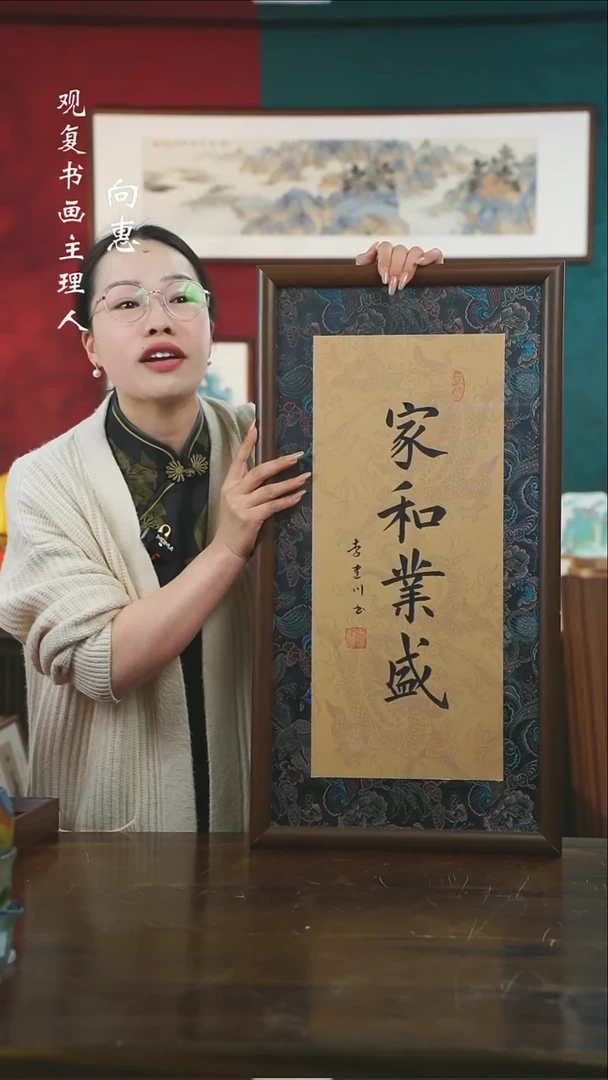 观复书画主理人
向惠
家和業盛
李建川书